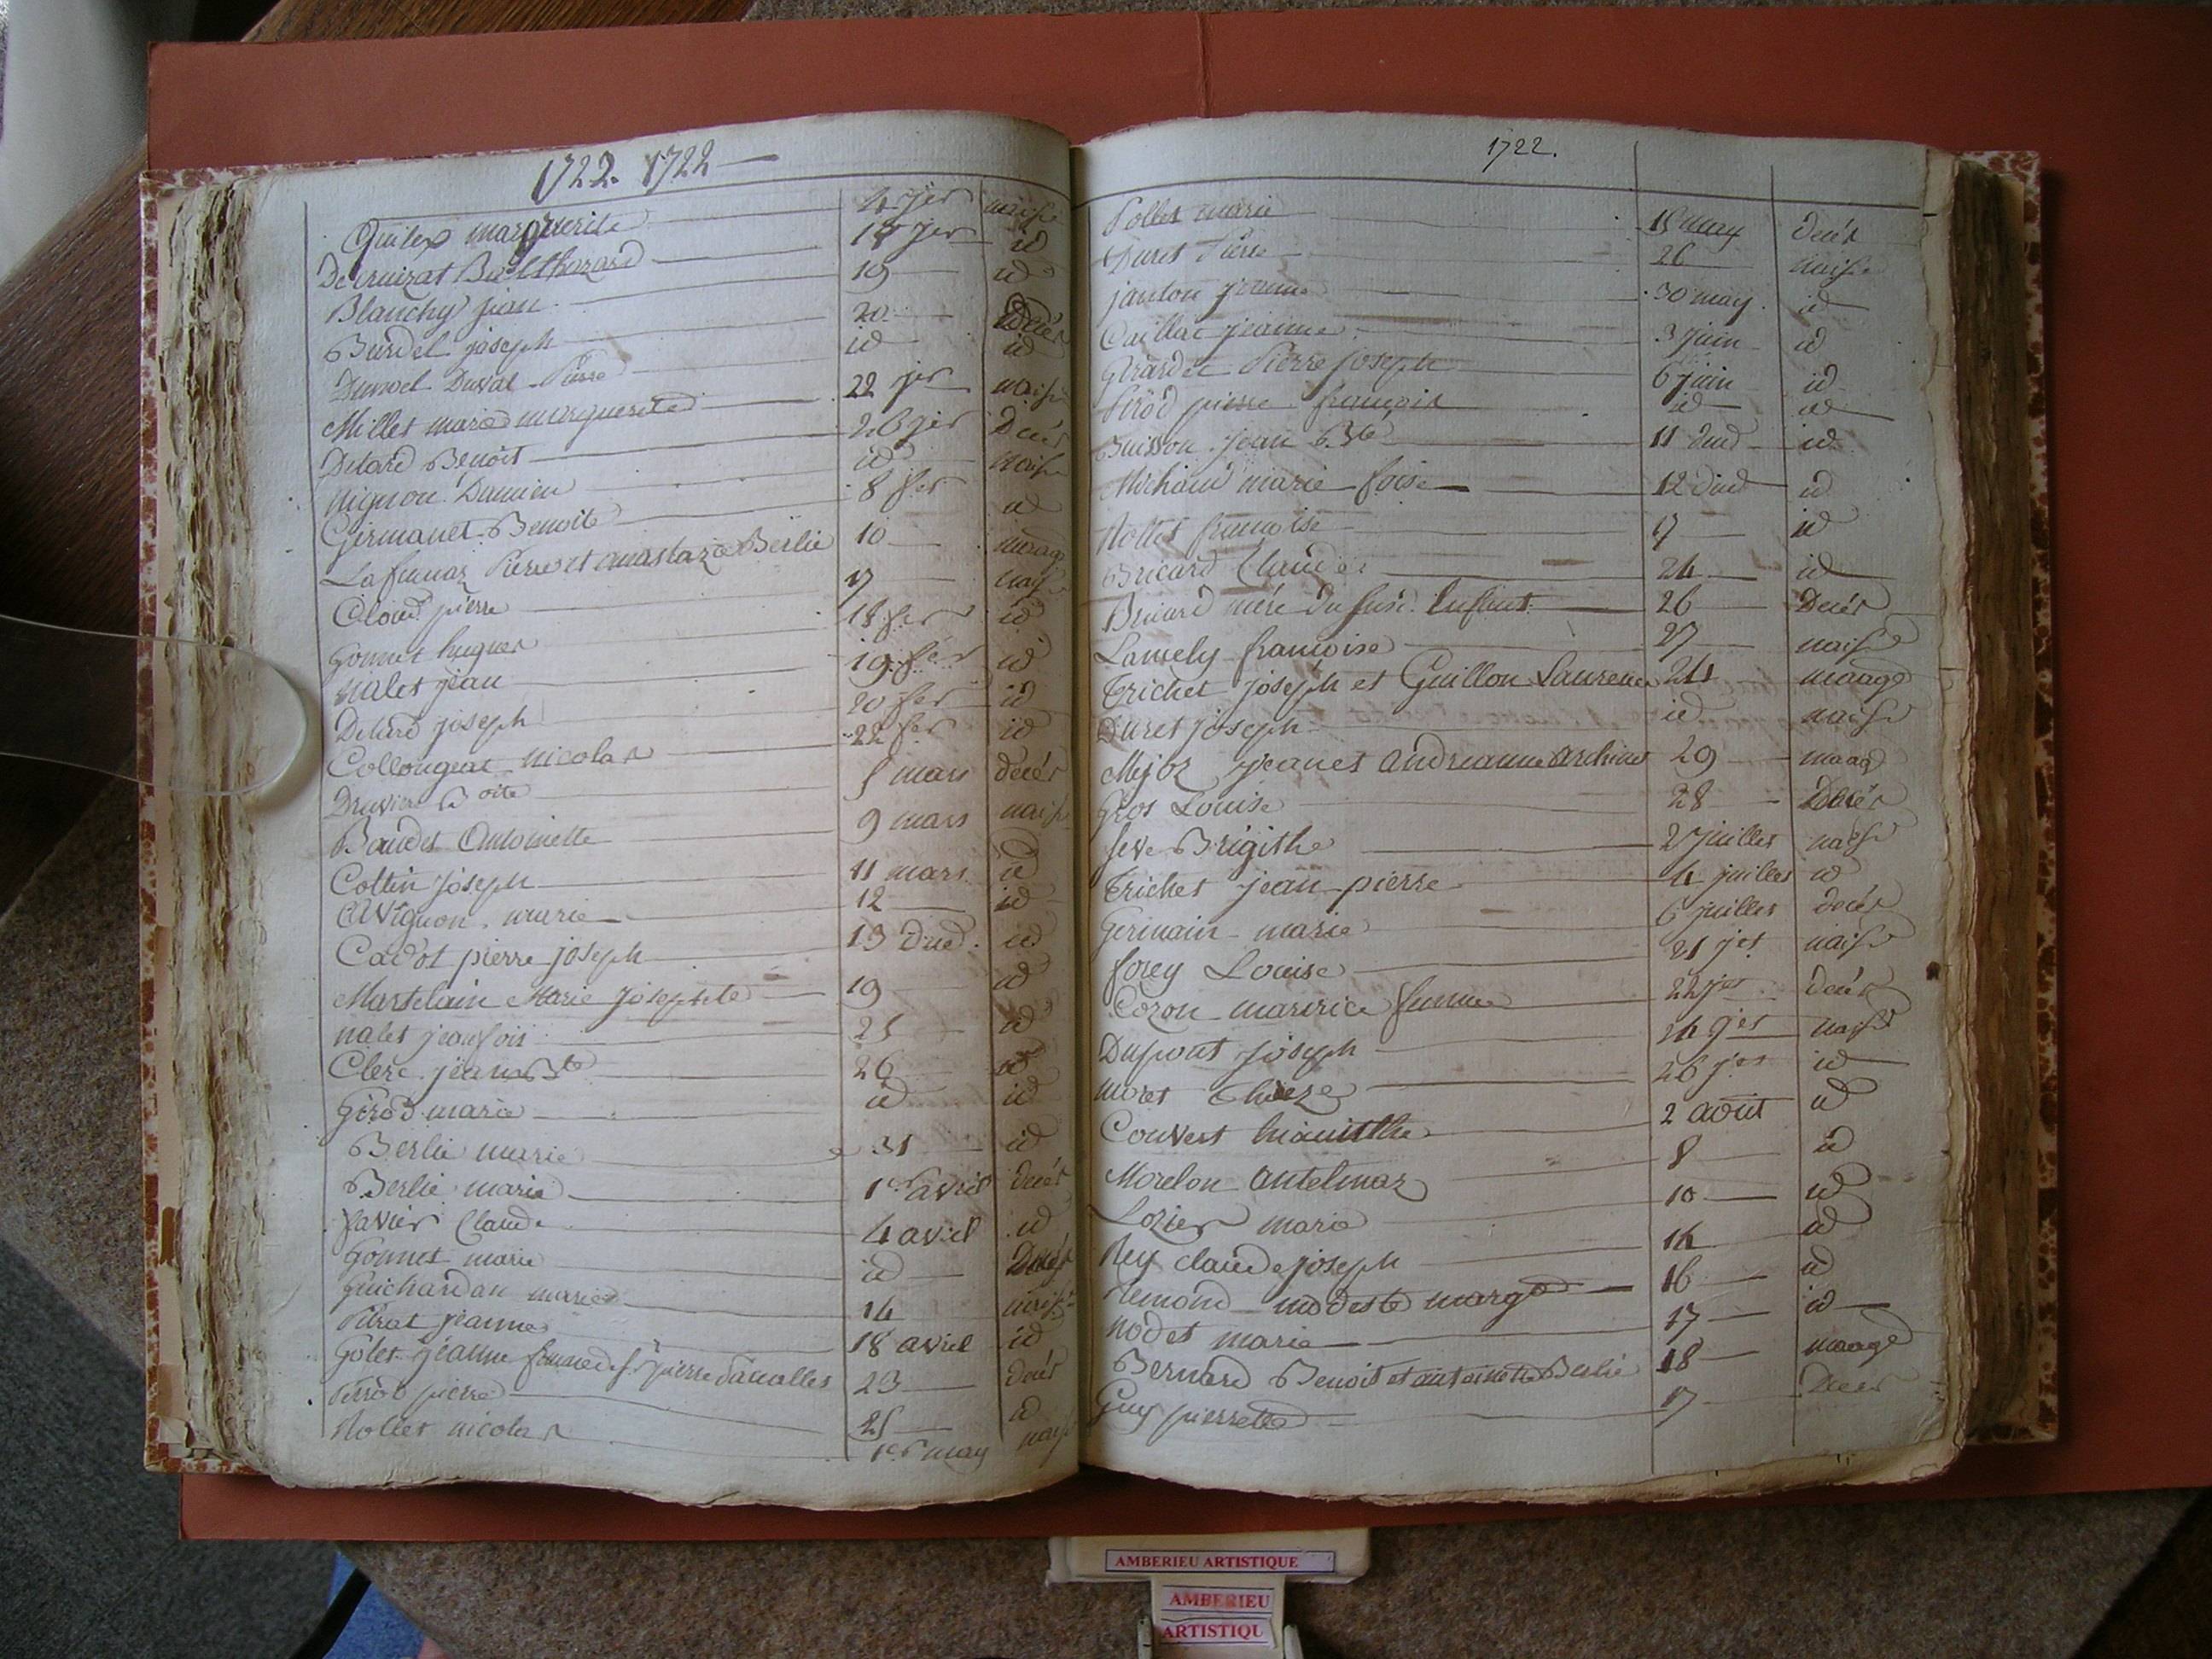 1722. 1722
marguerite 4 jer naise
Decruizat Balthazard 18 jer id
Blanchy jean 19 id
Burdet joseph 20 Décès
Dunoel Duval Pierre id id
Millet marie marguerite 22 jer naise
Delard Benoit 26 jer Décès
mignon Damien id naise
Germanet Benoite 8 fer id
Lafumaz Pierre et anastazie Berlie 10 maage
Cloud pierre 17 naise
Gonnet hugues 18 fer id
nalet jean 19 fer id
Delard joseph 20 fer id
Collongeat nicolas 22 fer id
Druvier Boite 5 mars décès
Baudet Antoinette 9 mars naise
Cottin Joseph 11 mars id
Avignon marie 12 id
Cadot pierre joseph 13 dud. id
Martelain Marie Josephte 19 id
nalet jean fois 25 id
Clerc jean Bte 26 id
Gérod marie id id
Berlie marie 31 id
Berlie marie 1er avril décès
favier Claude 4 avril id
Gonnet marie id Décès
Guichardan marie 14 naise
Pilrat jeanne 18 avril id
Golet jeanne femme de sr pierre 23 décès
Perrod pierre 25 id
Nollet nicolas 1er may naise
1722.
Pollet marie 18 may décès
Duret Pierre 26 naise
janton jeanne 30 may. id
Caillat jeanne 3 juin id
Girardet Pierre joseph 6 juin id
pierre françois id id
Buisson jean Bte 11 dud id
Michaud marie foise 12 dud id
Nollet françoise 17 id
Bricard Claude 24 id
Bricard mère du susd. Enfant 26 Décès
Lamely françoise 27 naise
Trichet joseph et Guillon Laurence 24 maage
Duret joseph id naise
Mejoz jean et andreanne 29 maage
Gros Louise 28 Décès
feve Brigithe 2 juillet naise
Trichet jean pierre 4 juillet id
Germain marie 6 juillet décès
forey Louise 21 jet naise
Cozon femme 22 jet décès
Dupont joseph 24 jet naise
moret 26 jet id
Couvert hiacinthe 2 août id
Morelon Antelmaz 8 id
Lozier marie 10 id
Rey claude joseph 14 id
Remond modeste 16 id
nodet marie 17 id
Bernard Benoit et antoinette Berlie 18 maage
Guy pierrette 17 Décès
AMBERIEU ARTISTIQUE
AMBERIEU
ARTISTIQU